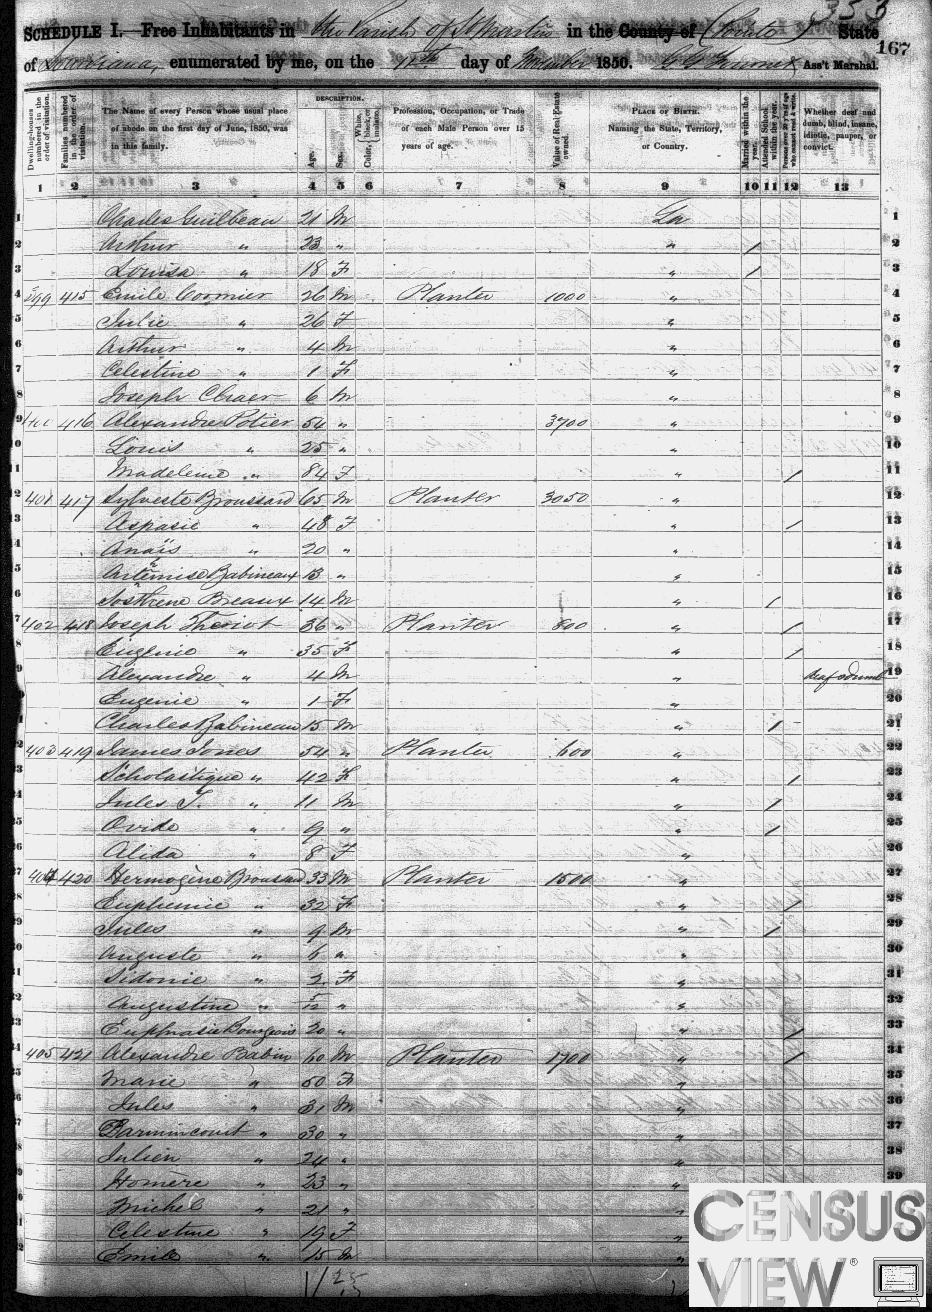 353
SCHEDULE I. Free Inhabitants in the Parish of St Martin in the County of State
of Louisiana, enumerated by me, on the day of November 1850. Ass't Marshal.
167
Dwelling-houses numbered in the order of visitation.
Families numbered in the order of visitation.
The Name of every Person whose usual place of abode on the first day of June, 1850, was in this family.
DESCRIPTION.
Age.
Sex.
Color, White, black, or mulatto.
Profession, Occupation, or Trade of each Male Person over 15 years of age.
Value of Real Estate owned.
PLACE OF BIRTH. Naming the State, Territory, or Country.
Married within the year.
Attended School within the year.
Persons over 20 y'rs of age who cannot read & write.
Whether deaf and dumb, blind, insane, idiotic, pauper, or convict.
1 2 3 4 5 6 7 8 9 10 11 12 13
1 Charles Guilbeau 21 M La 1
2 Arthur " 23 " " / 2
3 Louisa " 18 F " / 3
4 399 415 Emile Cormier 26 M Planter 1000 " 4
5 Julie " 26 F " 5
6 Arthur " 4 M " 6
7 Celestine " 1 F " 7
8 Joseph 6 M " 8
9 400 416 Alexandre Potier 54 " 3700 " 9
10 Louis " 25 " " 10
11 Madeleine " 84 F " / 11
12 401 417 Sylveste Broussard 65 M Planter 3050 " 12
13 Aspasie " 48 F " / 13
14 Anaïs " 20 " " 14
15 Artémise Babineaux 13 " " 15
16 Sosthene Breaux 14 M " / 16
17 402 418 Joseph Theriot 36 " Planter 800 " / 17
18 Eugenie " 35 F " / 18
19 Alexandre " 4 M " deaf & dumb 19
20 Eugenie " 1 F " 20
21 Charles Babineau 15 M " / 21
22 403 419 James Jones 54 " Planter 600 " 22
23 Scholastique " 42 F " / 23
24 Jules T. " 11 M " / 24
25 Ovide " 9 " " / 25
26 Alida " 8 F " 26
27 404 420 Hermogène Broussard 33 M Planter 1500 " 27
28 Euphemie " 32 F " / 28
29 Jules " 9 M " / 29
30 Auguste " 6 " " 30
31 Sidonie " 2 F " 31
32 Augustine " " " 32
33 Euphrasie Bourgeois 20 " " / 33
34 405 421 Alexandre Babin 60 M Planter 1700 " / 34
35 Marie " 50 F " 35
36 Jules " 31 M " 36
37 Darmincourt " 30 " " 37
38 Julien " 24 " " 38
39 Homère " 23 " " 39
Michel " 21 " "
Celestine " 19 F "
Emile " 15 M "
CENSUS
VIEW®